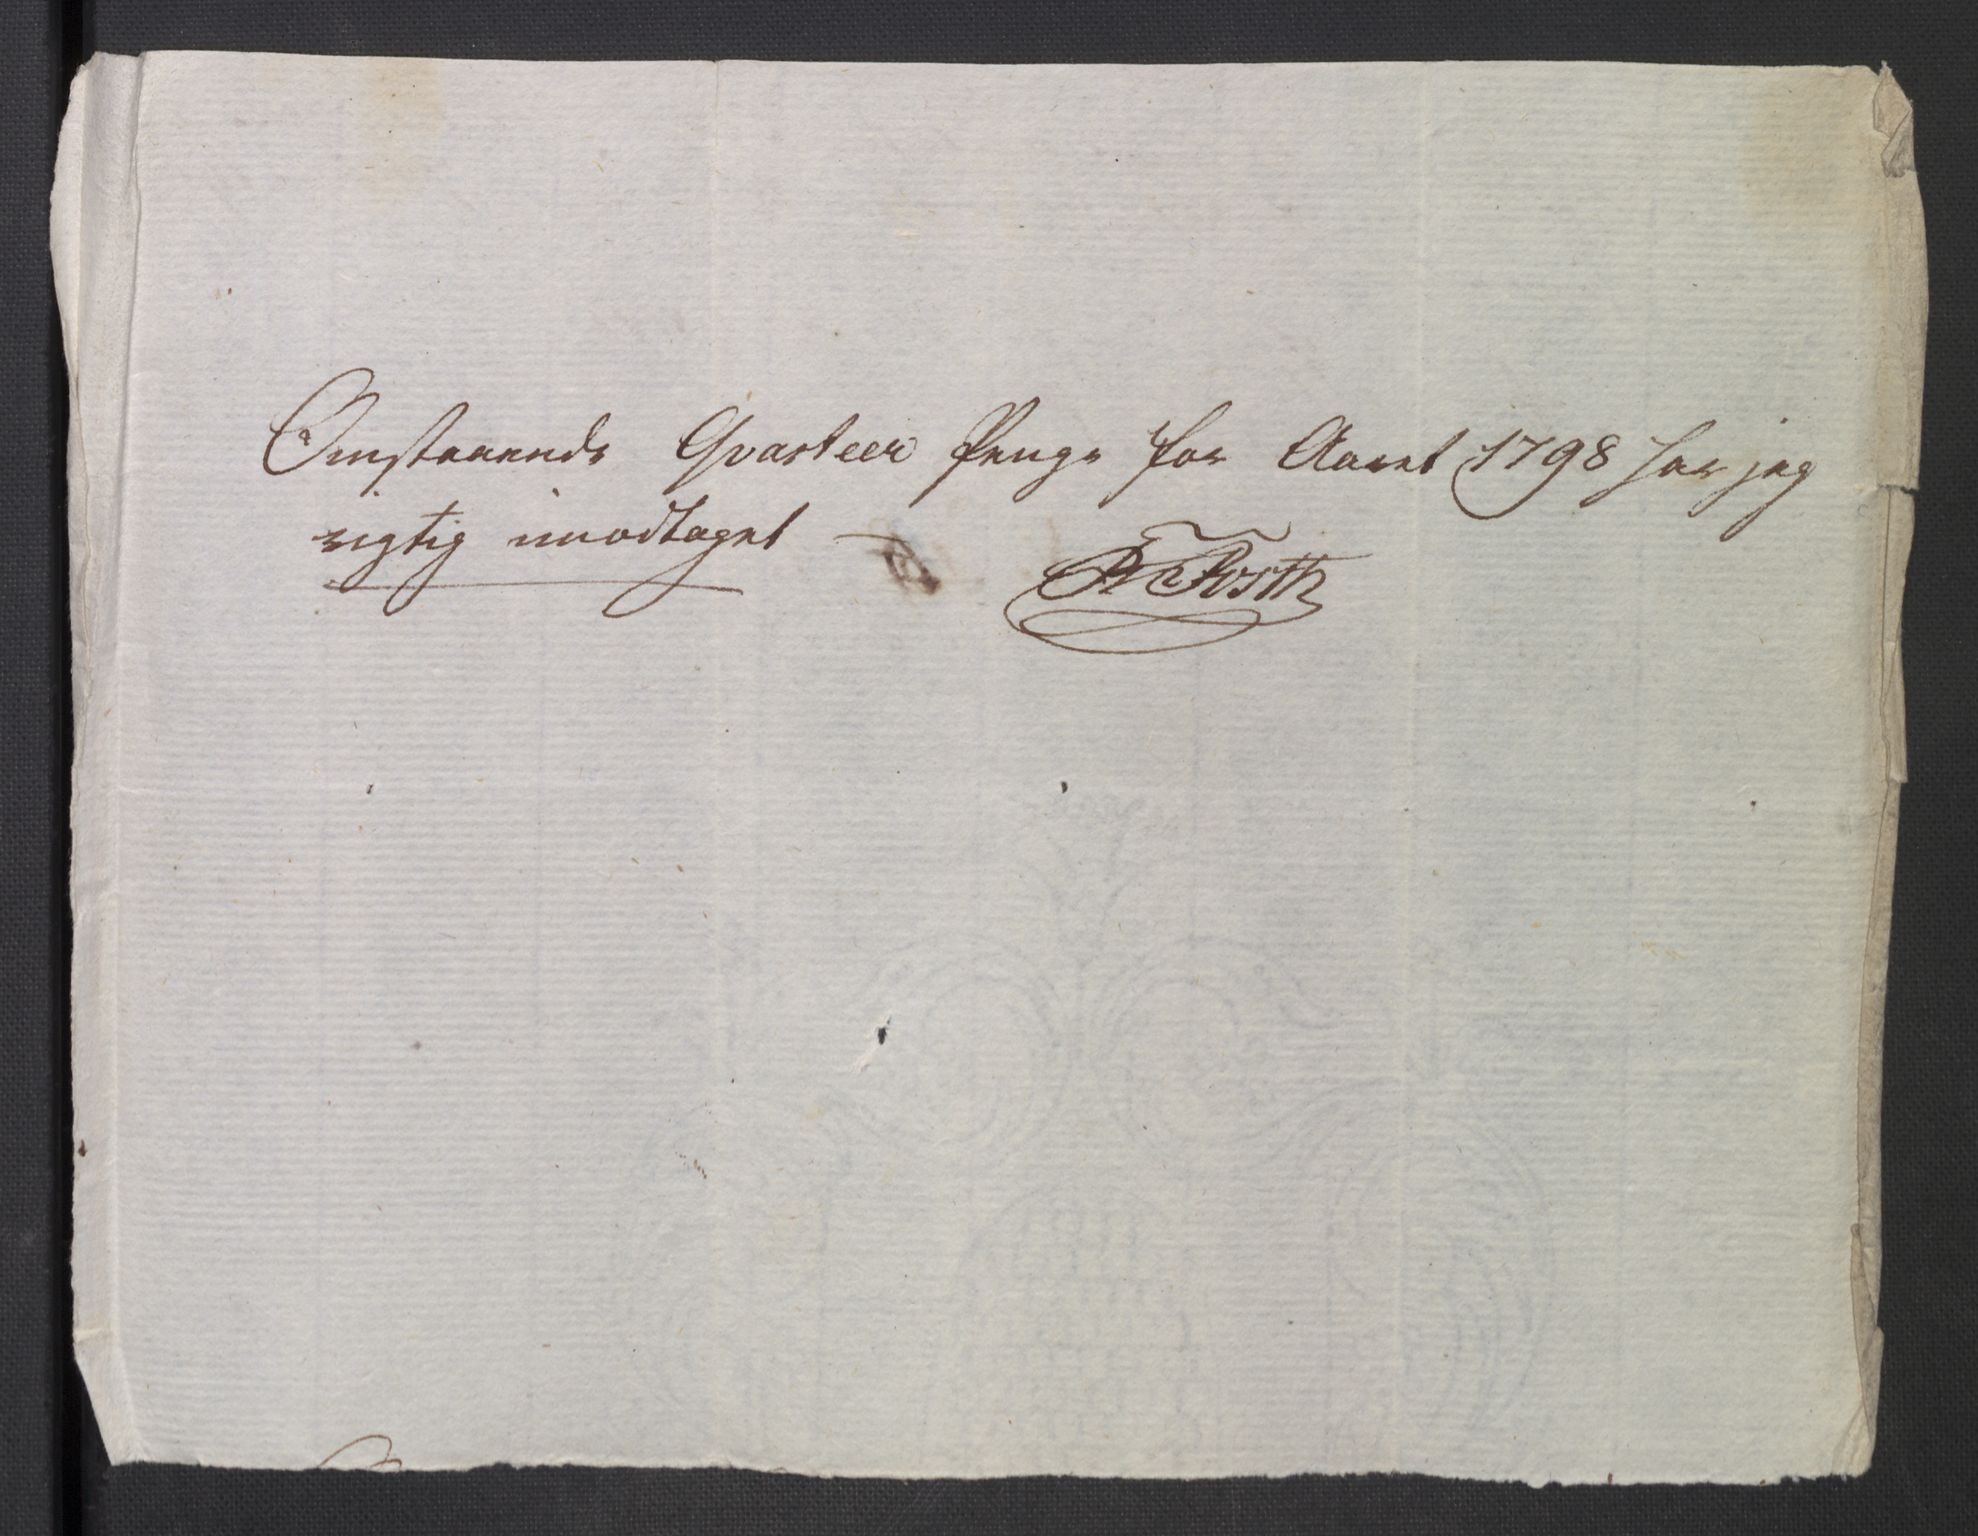 Omstaaende Qvarteer Penge for Aaret 1798 har jeg
rigtig imodtaget